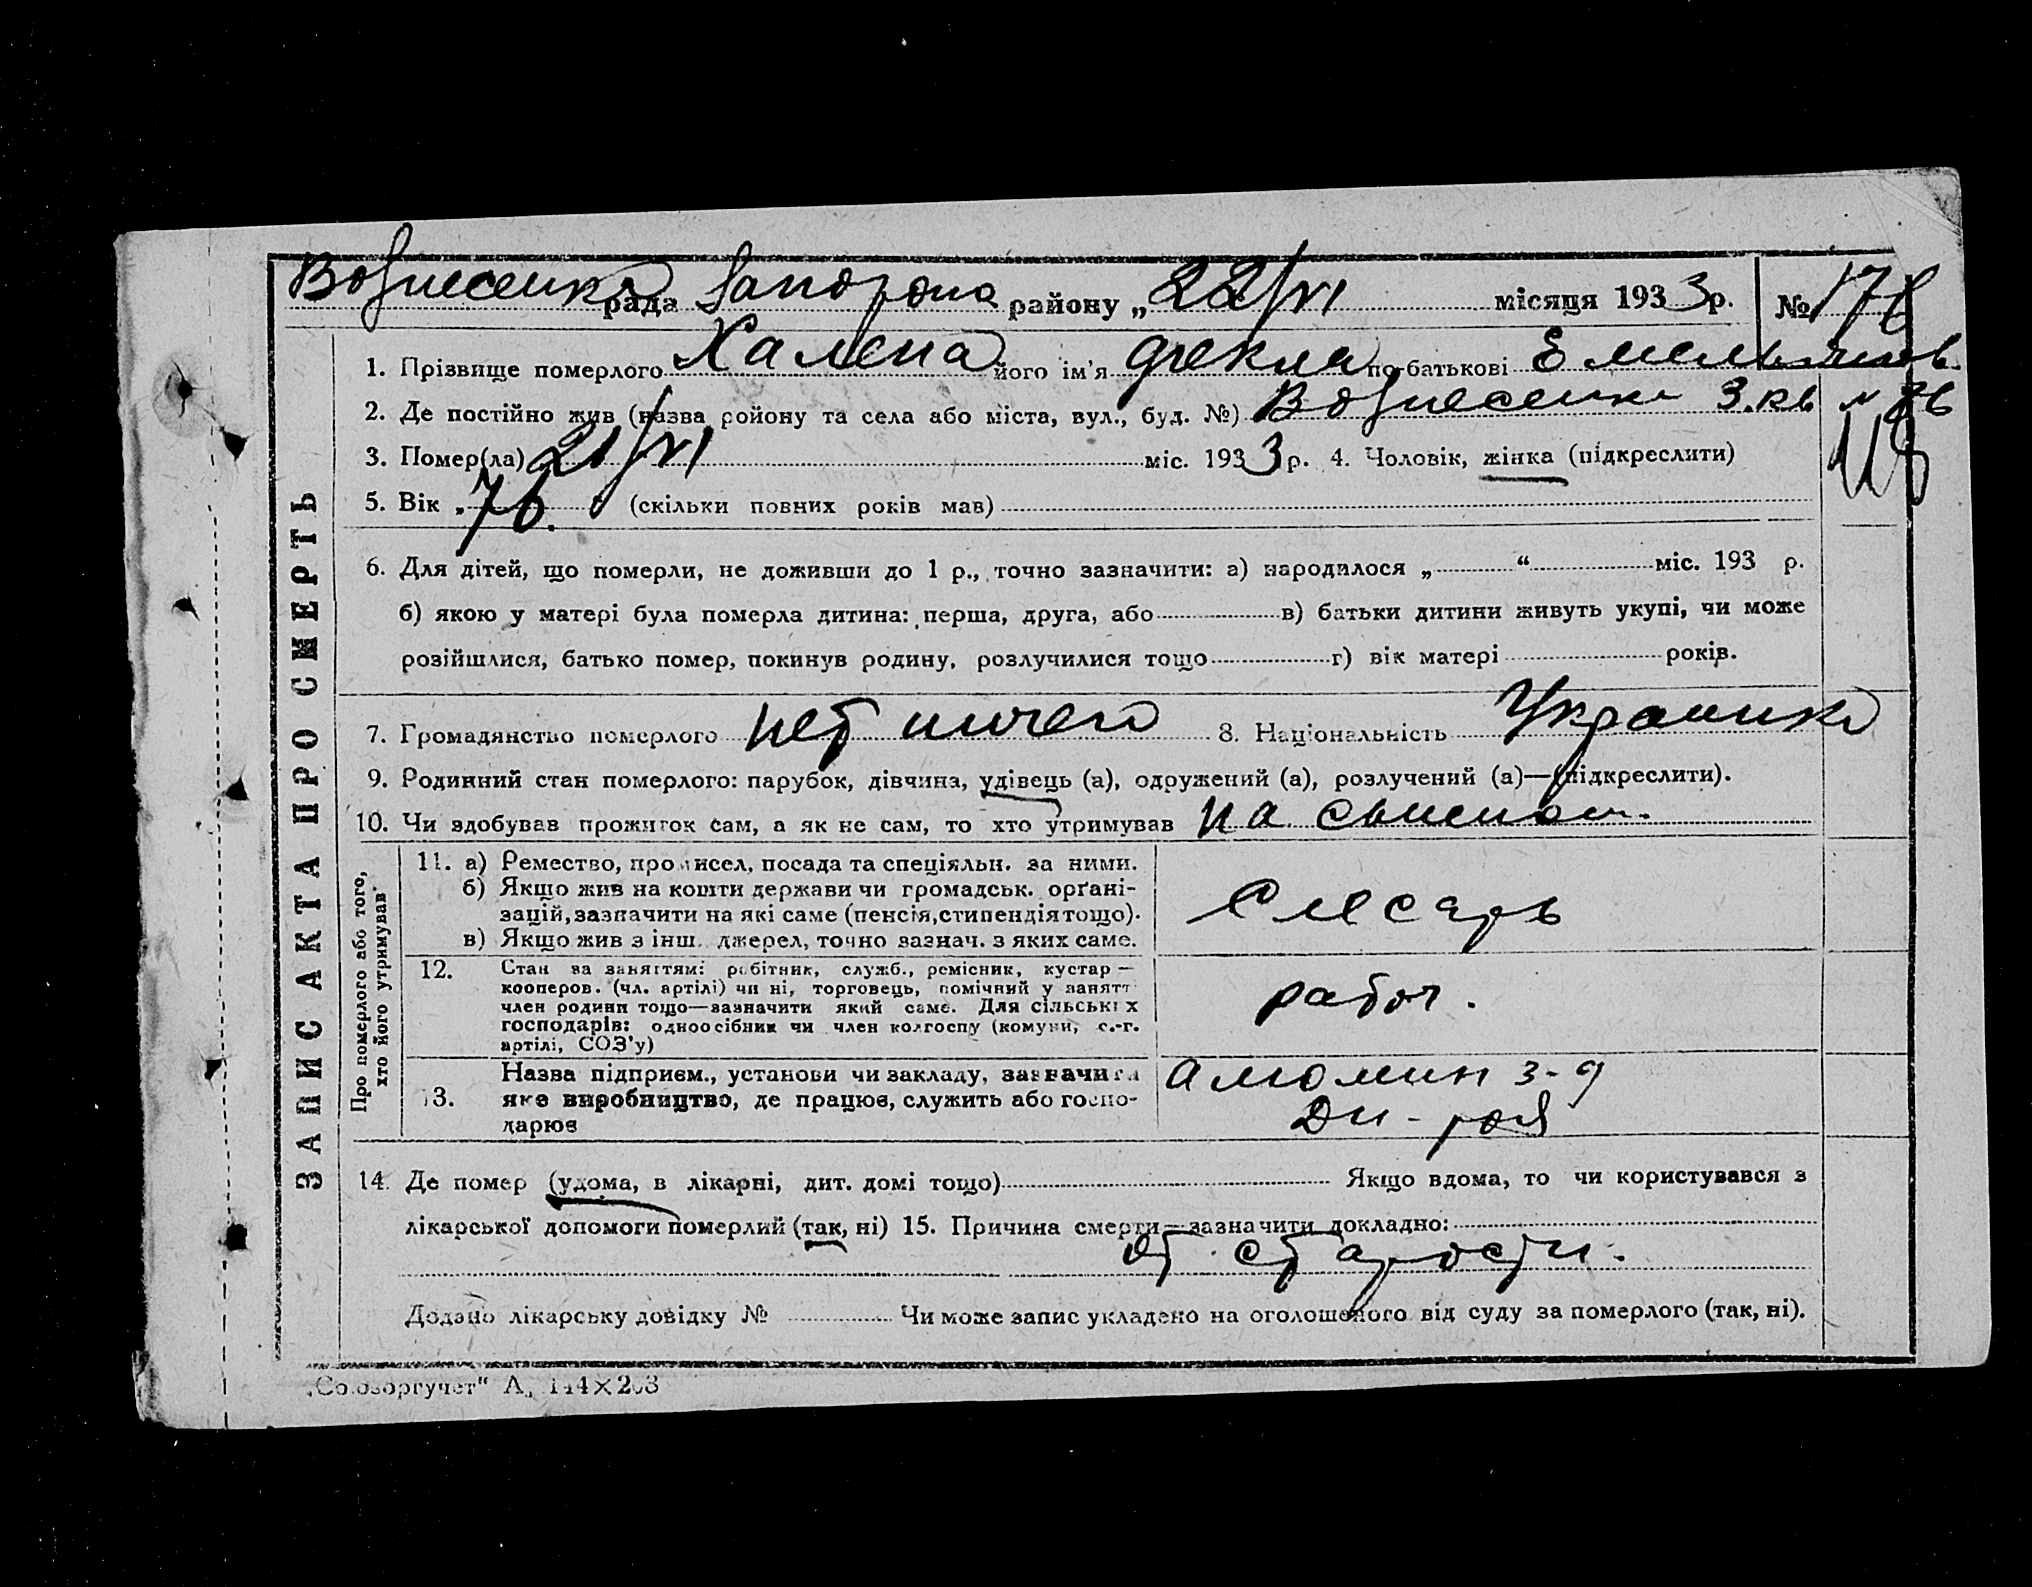 Вознесенка рада Запорожа району „ 22/VI місяця 1933 р. № 176
1. Прізвище померлого Халепа його ім'я Фекла по-батькові Емельянов.
2. Де постійно жив (назва ройону та села або міста, вул., буд. №) Вознесенка 3.кв 36
3. Помер(ла) 21/VI міс. 1933 р. 4. Чоловік, жінка (підкреслити)
5. Вік „ 76. (скільки повних років мав)
6. Для дітей, що померли, не доживши до 1 р., точно зазначити: а) народилося „ “ міс. 193 р.
б) якою у матері була померла дитина: перша, друга, або в) батьки дитини живуть укупі, чи може
розійшлися, батько помер, покинув родину, розлучилися тощо г) вік матері років.
7. Громадянство померлого нет ничего 8. Національність Украинка
9. Родинний стан померлого: парубок, дівчина, удівець (а), одружений (а), розлучений (а)—(підкреслити).
10. Чи здобував прожиток сам, а як не сам, то хто утримував на
ЗАПИС АКТА ПРО СМЕРТЬ
Про померлого або того, хто його утримував
11. а) Ремество, промисел, посада та спеціяльн. за ними.
б) Якщо жив на кошти держави чи громадськ. орґані-
зацій, зазначити на які саме (пенсія, стипендія тощо).
в) Якщо жив з інш. джерел, точно зазнач. з яких саме.
Слесарь
12. Стан за заняттям: робітник, служб., ремісник, кустар —
кооперов. (чл. артілі) чи ні, торговець, помічний у занятт
член родини тощо—зазначити який саме. Для сільських
господарів: одноосібник чи член колгоспу (комуни, с.-г.
артілі, СОЗ'у)
работ.
13. Назва підприєм., установи чи закладу, зазначити
яке виробництво, де працює, служить або госпо-
дарює
Алюмин з-д
Дн-роя
14. Де помер (удома, в лікарні, дит. домі тощо) Якщо вдома, то чи користувався з
лікарської допомоги померлий (так, ні) 15. Причина смерти—зазначити докладно:
от старости.
Додано лікарську довідку № Чи може запис укладено на оголошеного від суду за померлого (так, ні).
„Союзоргучет“ А, 144×203